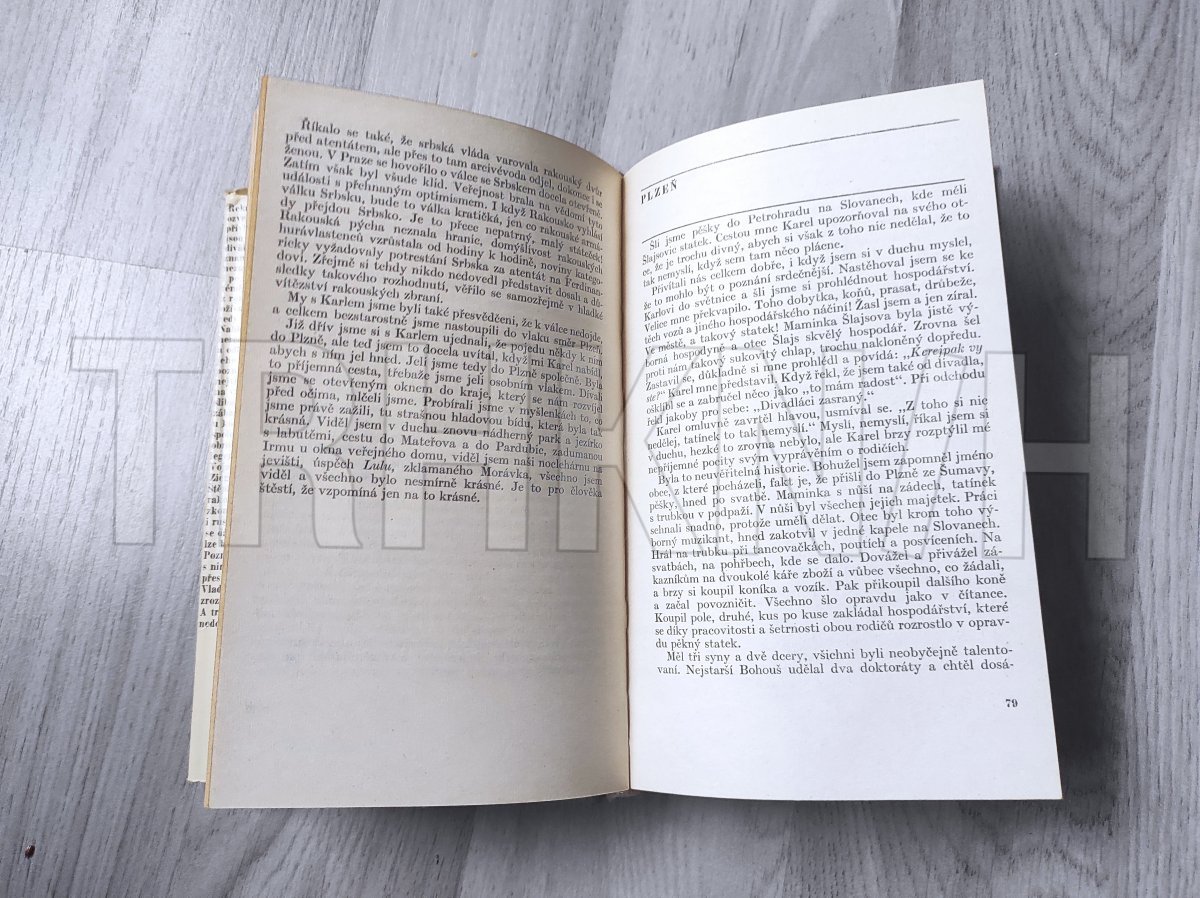 Říkalo se také, že srbská vláda varovala rakouský dvůr
před atentátem, ale přes to tam arcivévoda odjel, dokonce i se
ženou. V Praze se hovořilo o válce se Srbskem docela otevřeně.
Zatím však byl všude klid. Veřejnost brala na vědomí tyto
události s přehnaným optimismem. I když Rakousko vyhlásí
válku Srbsku, bude to válka kratičká, jen co rakouské armá-
dy přejdou Srbsko. Je to přece nepatrný, malý státeček!
Rakouská pýcha neznala hranic, domýšlivost rakouských
hurávlastenců vzrůstala od hodiny k hodině, noviny katego-
ricky vyžadovaly potrestání Srbska za atentát na Ferdinan-
dovi. Zřejmě si tehdy nikdo nedovedl představit dosah a dů-
sledky takového rozhodnutí, věřilo se samozřejmě v hladké
vítězství rakouských zbraní.
My s Karlem jsme byli také přesvědčeni, že k válce nedojde,
a celkem bezstarostně jsme nastoupili do vlaku směr Plzeň.
Již dřív jsme si s Karlem ujednali, že pojedu někdy k nim
do Plzně, ale teď jsem to docela uvítal, když mi Karel nabídl,
abych s ním jel hned. Jeli jsme tedy do Plzně společně. Byla
to příjemná cesta, třebaže jsme jeli osobním vlakem. Dívali
jsme se otevřeným oknem do kraje, který se nám rozvíjel
před očima, mlčeli jsme. Probírali jsme v myšlenkách to, co
jsme právě zažili, tu strašnou hladovou bídu, která byla tak
krásná. Viděl jsem v duchu znovu nádherný park a jezírko
s labutěmi, cestu do Mateřova a do Pardubic, zadumanou
Irmu u okna veřejného domu, viděl jsem naši noclehárnu na
jevišti, úspěch Lulu, zklamaného Morávka, všechno jsem
viděl a všechno bylo nesmírně krásné. Je to pro člověka
štěstí, že vzpomíná jen na to krásné.
PLZEŇ
Šli jsme pěšky do Petrohradu na Slovanech, kde měli
Šlajsovic statek. Cestou mne Karel upozorňoval na svého ot-
ce, že je trochu divný, abych si však z toho nic nedělal, že to
tak nemyslí, když sem tam něco plácne.
Přivítali nás celkem dobře, i když jsem si v duchu myslel,
že to mohlo být o poznání srdečnější. Nastěhoval jsem se ke
Karlovi do světnice a šli jsme si prohlédnout hospodářství.
Velice mne překvapilo. Toho dobytka, koňů, prasat, drůbeže,
těch vozů a jiného hospodářského náčiní! Žasl jsem a jen zíral.
Ve městě, a takový statek! Maminka Šlajsova byla jistě vý-
borná hospodyně a otec Šlajs skvělý hospodář. Zrovna šel
proti nám takový sukovitý chlap, trochu nakloněný dopředu.
Zastavil se, důkladně si mne prohlédl a povídá: „Kerejpak vy
ste?“ Karel mne představil. Když řekl, že jsem také od divadla,
ošklíbl se a zabručel něco jako „to mám radost“. Při odchodu
řekl jakoby pro sebe: „Divadláci zasraný.“
Karel omluvně zavrtěl hlavou, usmíval se. „Z toho si nic
nedělej, tatínek to tak nemyslí.“ Myslí, nemyslí, říkal jsem si
v duchu, hezké to zrovna nebylo, ale Karel brzy rozptýlil mé
nepříjemné pocity svým vyprávěním o rodičích.
Byla to neuvěřitelná historie. Bohužel jsem zapomněl jméno
obce, z které pocházeli, fakt je, že přišli do Plzně ze Šumavy,
pěšky, hned po svatbě. Maminka s nůší na zádech, tatínek
s trubkou v podpaží. V nůši byl všechen jejich majetek. Práci
sehnali snadno, protože uměli dělat. Otec byl krom toho vý-
borný muzikant, hned zakotvil v jedné kapele na Slovanech.
Hrál na trubku při tancovačkách, poutích a posvíceních. Na
svatbách, na pohřbech, kde se dalo. Dovážel a přivážel zá-
kazníkům na dvoukolé káře zboží a vůbec všechno, co žádali,
a brzy si koupil koníka a vozík. Pak přikoupil dalšího koně
a začal povozničit. Všechno šlo opravdu jako v čítance.
Koupil pole, druhé, kus po kuse zakládal hospodářství, které
se díky pracovitosti a šetrnosti obou rodičů rozrostlo v oprav-
du pěkný statek.
Měl tři syny a dvě dcery, všichni byli neobyčejně talento-
vaní. Nejstarší Bohouš udělal dva doktoráty a chtěl dosá-
79
TRHKNIH